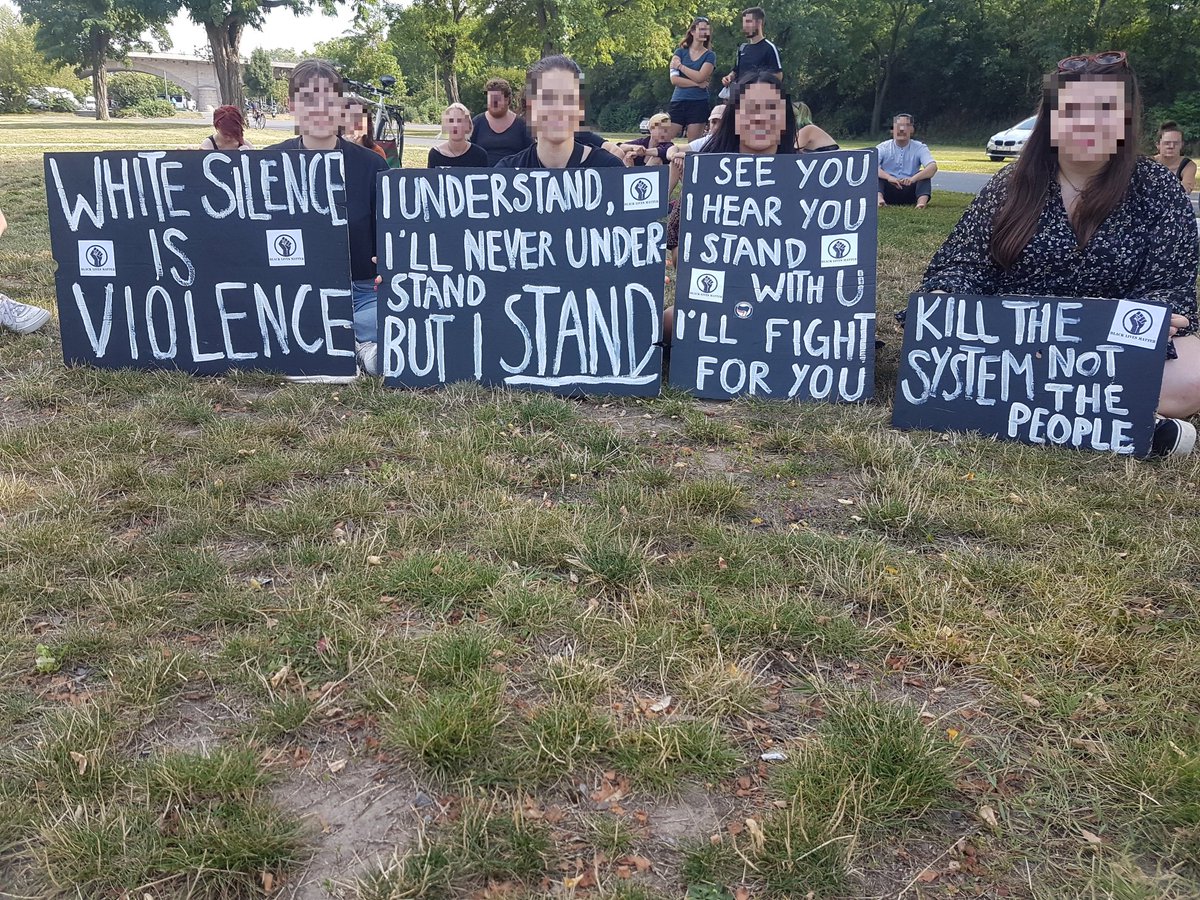 WHITE SILENCE
IS
VIOLENCE
BLACK LIVES MATTER
BLACK LIVES MATTER
I UNDERSTAND,
I'LL NEVER UNDER-
STAND
BUT I STAND
BLACK LIVES MATTER
I SEE YOU
I HEAR YOU
I STAND
WITH U
I'LL FIGHT
FOR YOU
BLACK LIVES MATTER
BLACK LIVES MATTER
KILL THE
SYSTEM NOT
THE
PEOPLE
BLACK LIVES MATTER